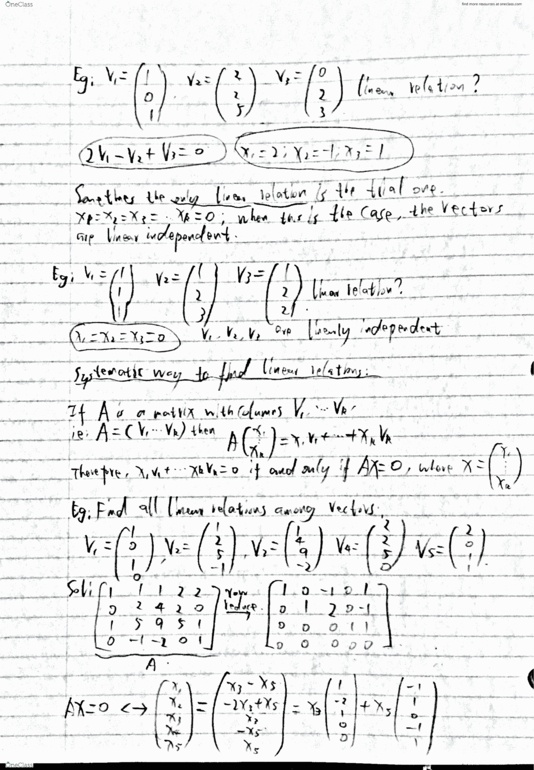 OneClass
find more resources at oneclass.com
Eg: V₁ = (1 0 1) V₂ = (2 2 5) V₃ = (0 2 3) linear relation?
2V₁ - V₂ + V₃ = 0 x₁ = 2; x₂ = -1; x₃ = 1
Sometimes the only linear relation is the trial one.
x₁ = x₂ = x₃ = ... xₖ = 0; when this is the case, the vectors
are linear independent.
Eg: V₁ = (1 1 1) V₂ = (1 2 3) V₃ = (1 2 2) linear relation?
x₁ = x₂ = x₃ = 0 V₁, V₂, V₃ are linearly independent
Systematic way to find linear relations:
If A is a matrix with columes V₁ ... Vₖ,
ie: A = (V₁ ... Vₖ) then A(x₁ ⋮ xₖ) = x₁V₁ + ... + xₖVₖ
Therefore, x₁V₁ + ... xₖVₖ = 0 if and only if AX = 0, where X = (x₁ ⋮ xₖ)
Eg: Find all linear relations among vectors.
V₁ = (1 0 1 0), V₂ = (1 2 5 -1), V₃ = (1 4 9 -2) V₄ = (2 2 5 0) V₅ = (2 0 1 1)
Sol: [1 1 1 2 2
0 2 4 2 0
1 5 9 5 1
0 -1 -2 0 1] row reduce → [1 0 -1 0 1
0 1 2 0 -1
0 0 0 1 1
0 0 0 0 0]
A.
AX = 0 ↔ (x₁ x₂ x₃ x₄ x₅) = (x₃ - x₅ -2x₃ + x₅ x₃ -x₅ x₅) = x₃(1 -2 1 0 0) + x₅(-1 1 0 -1 1)
OneClass